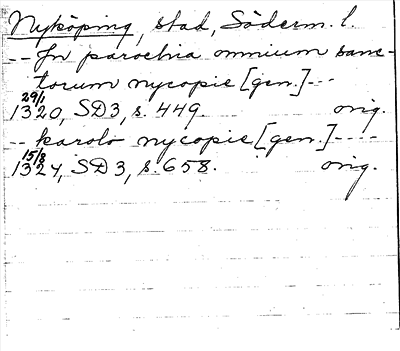 Nyköping, stad, Söderm. l.
-- In parochia omnium sanc-
torum nycopie [gen.] --
29/1
1320, SD3, s. 449. orig.
-- karolo nycopie [gen.] ----
15/8
1324, SD3, s. 658. orig.